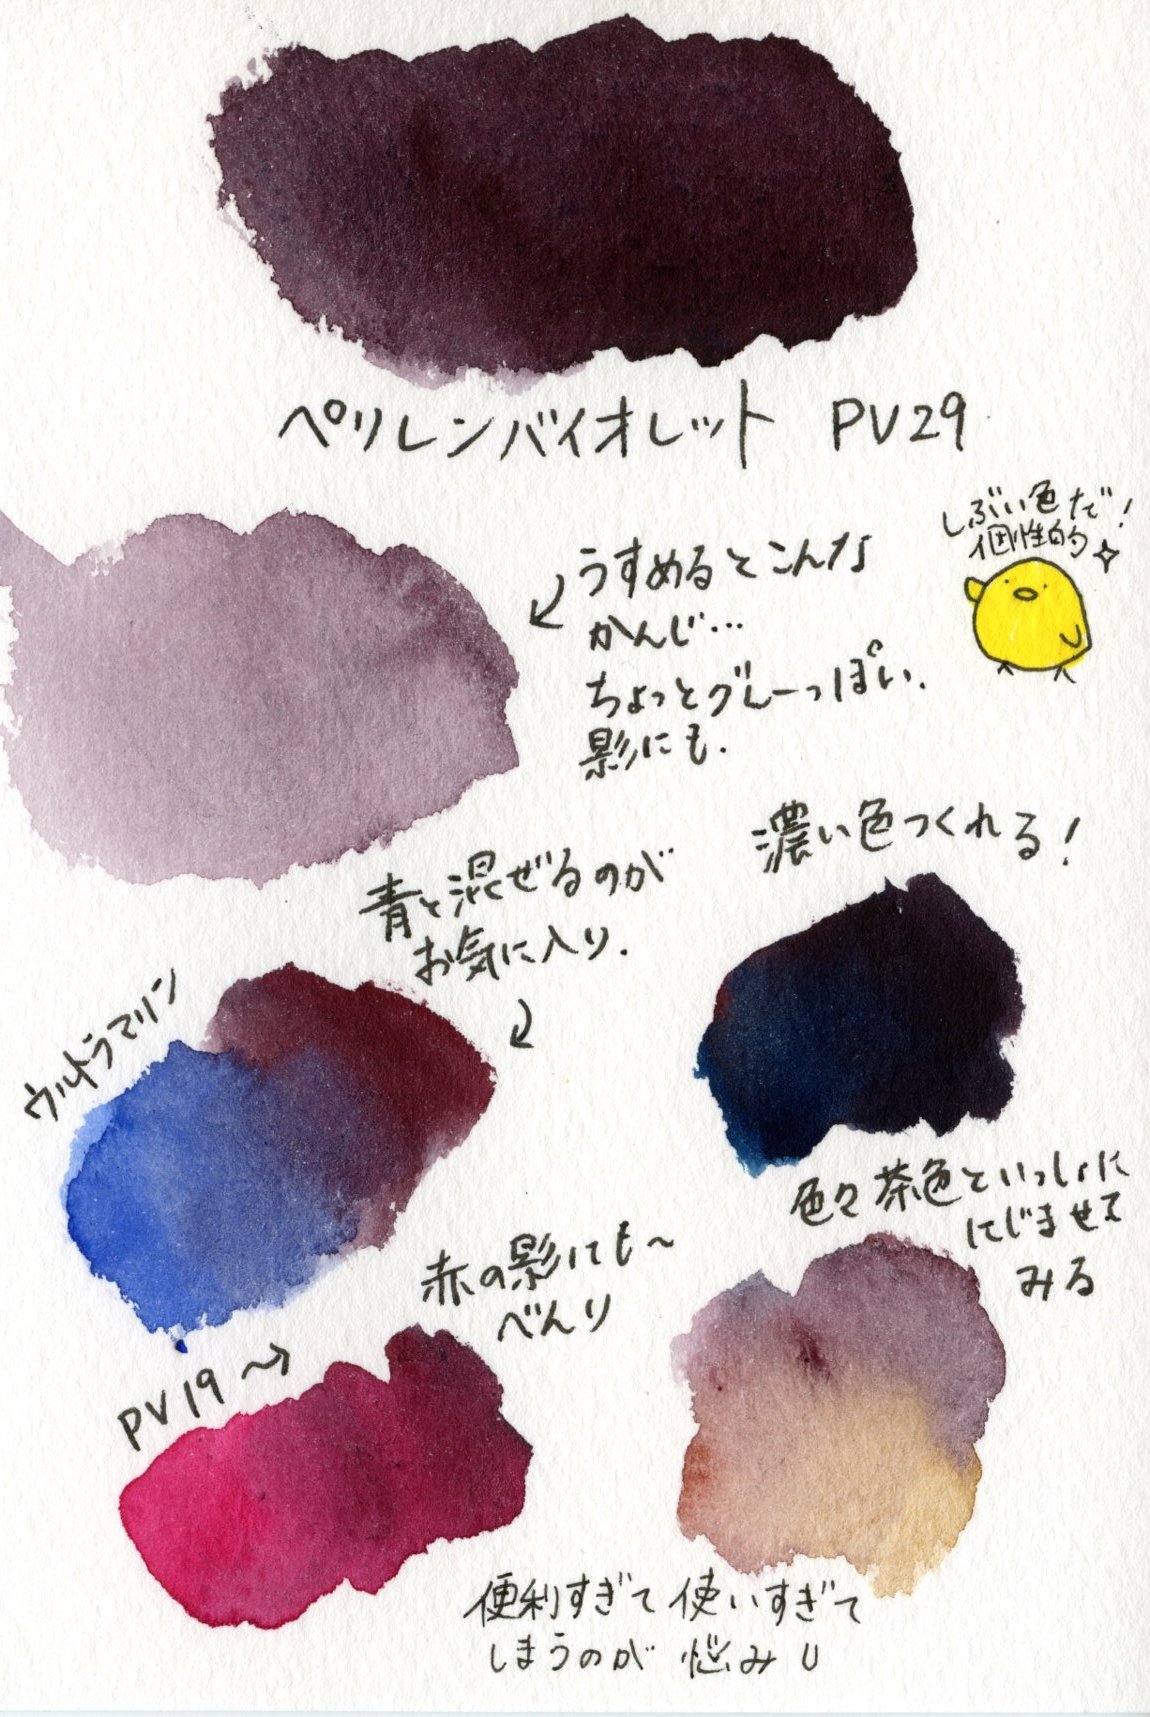 ペリレンバイオレット PV29
しぶい色だ!
個性的✧
うすめるとこんな
かんじ…
ちょっとグレーっぽい.
影にも.
濃い色つくれる!
青と混ぜるのが
お気に入り.
ウルトラマリン
色々茶色といっしょに
にじませて
みる
赤の影にも〜
べんり
PV19〜→
便利すぎて使いすぎて
しまうのが悩み